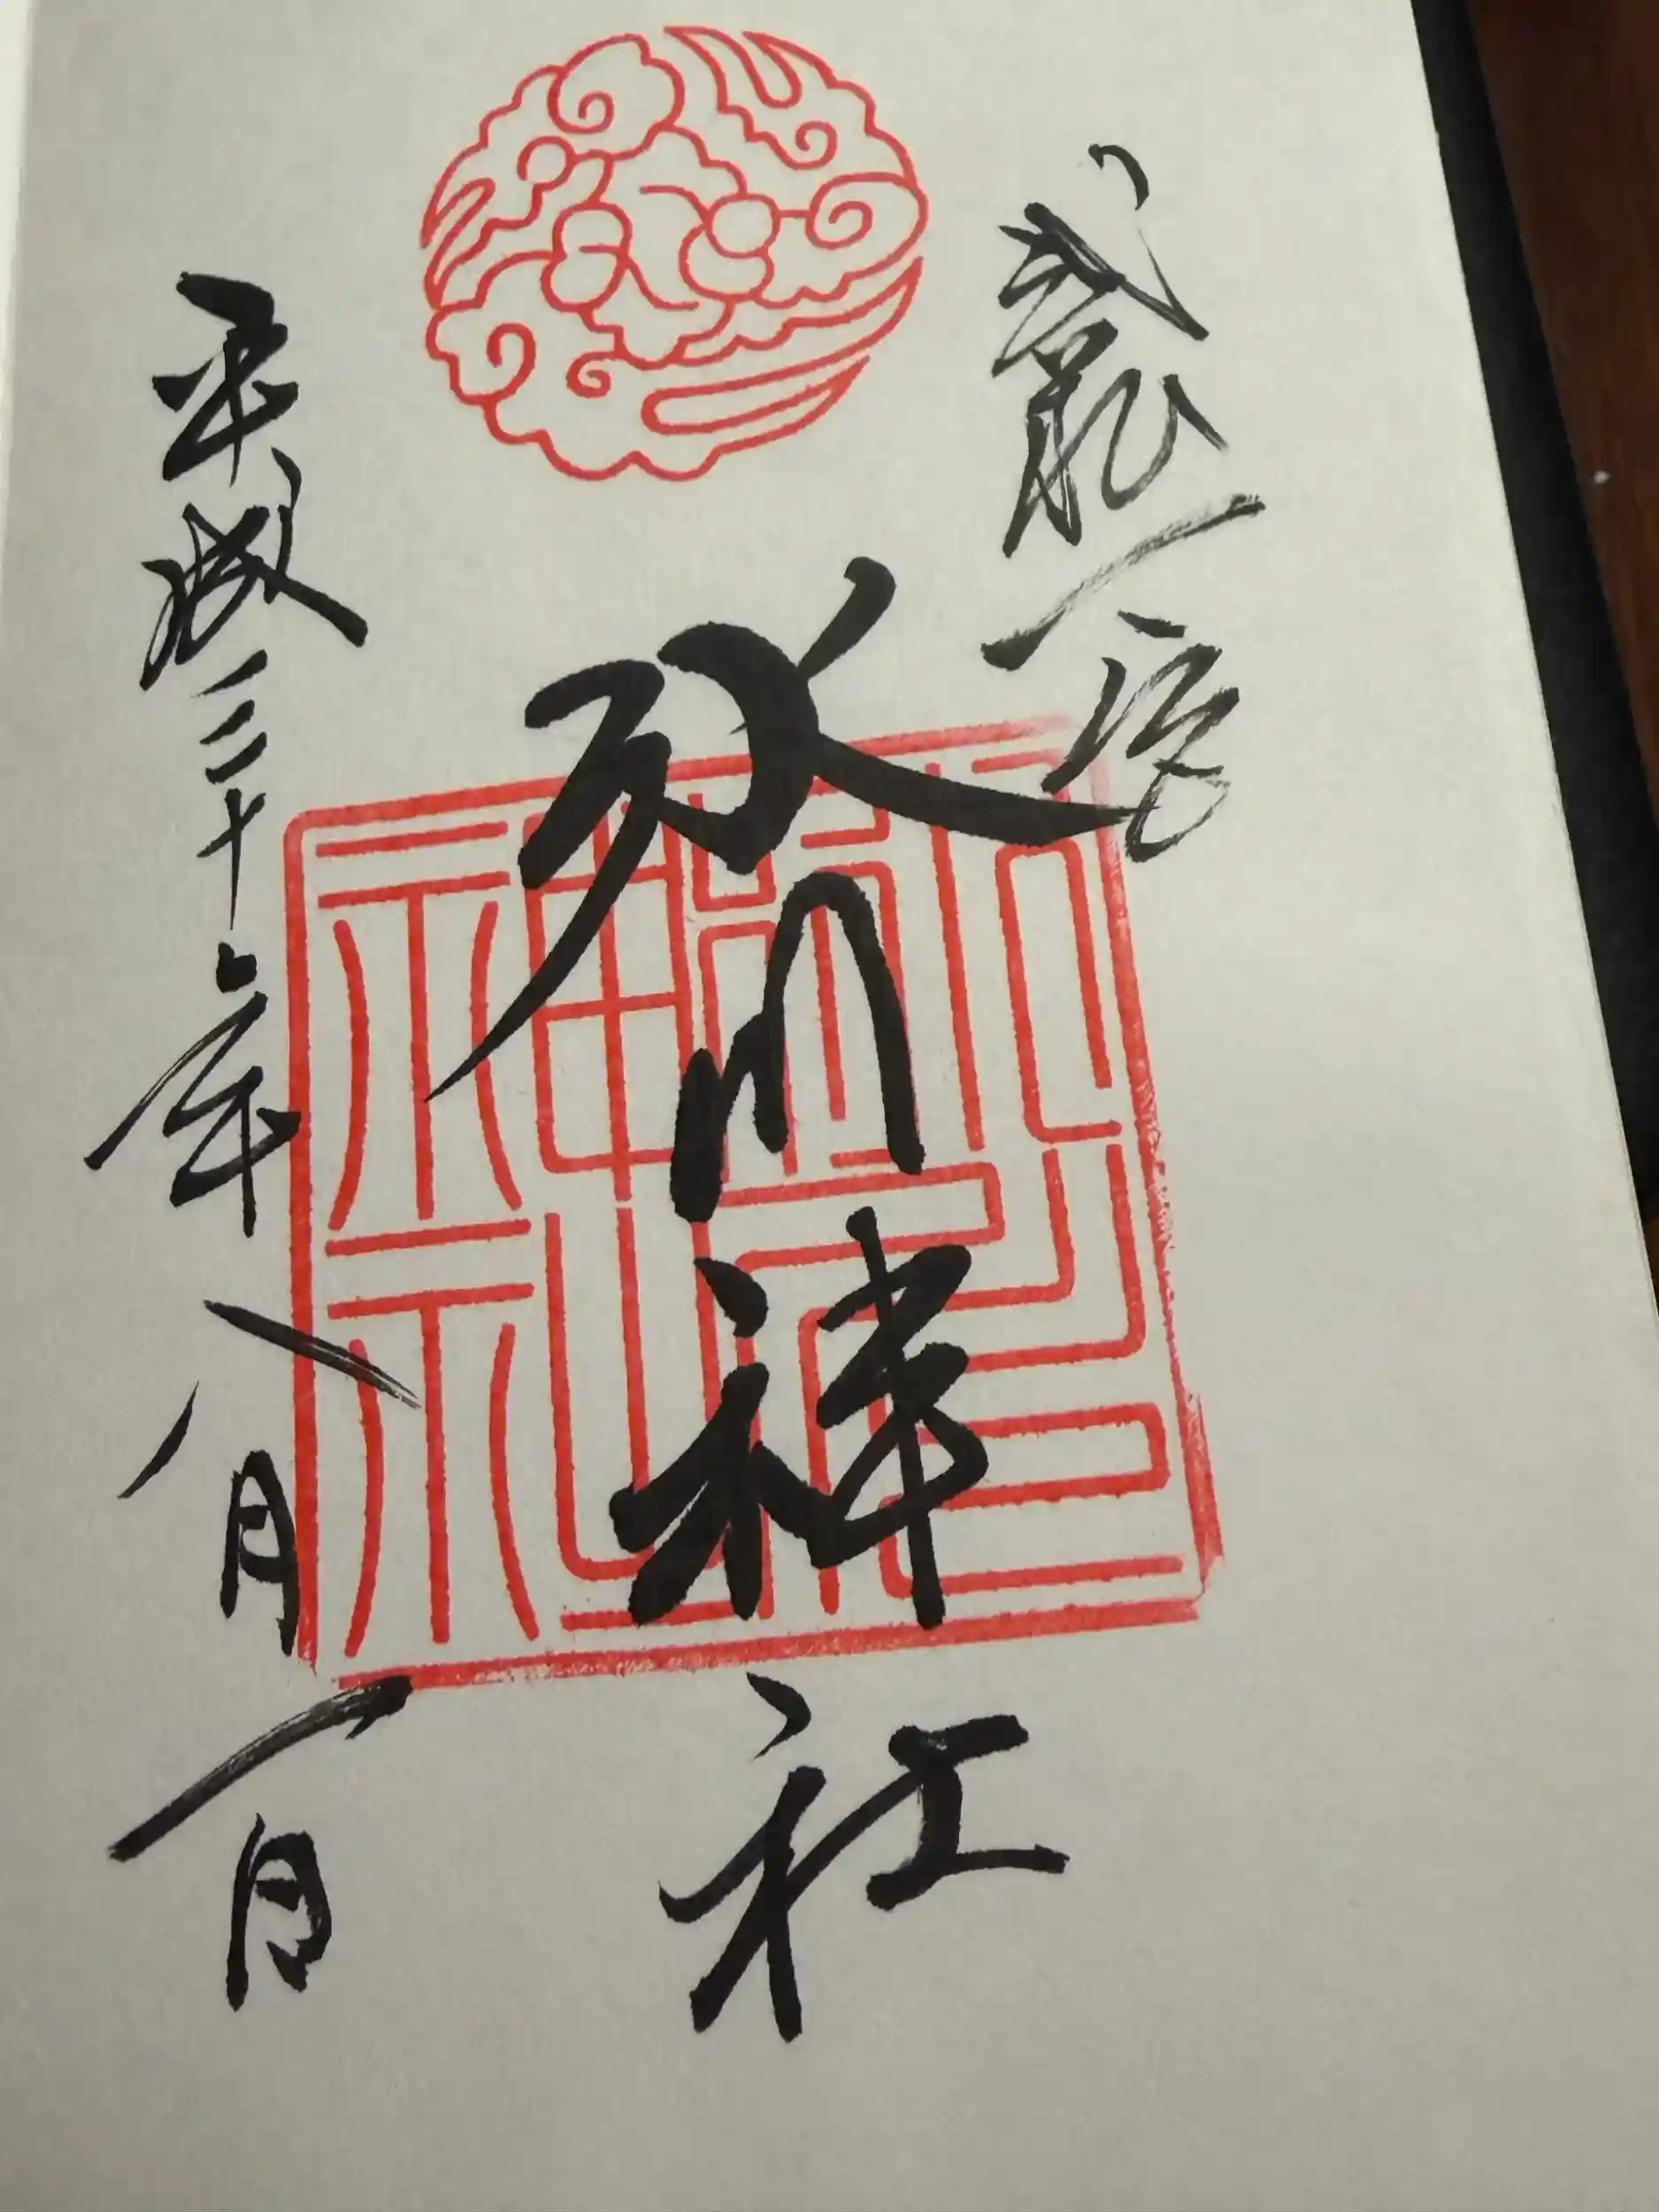 武蔵一宮
氷川神社
平成三十年八月一日